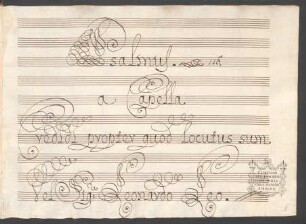 Psalmus. 115.
a Capella
Credidi propter quod locutus sum
Del Sig.r Leonardo Leo.